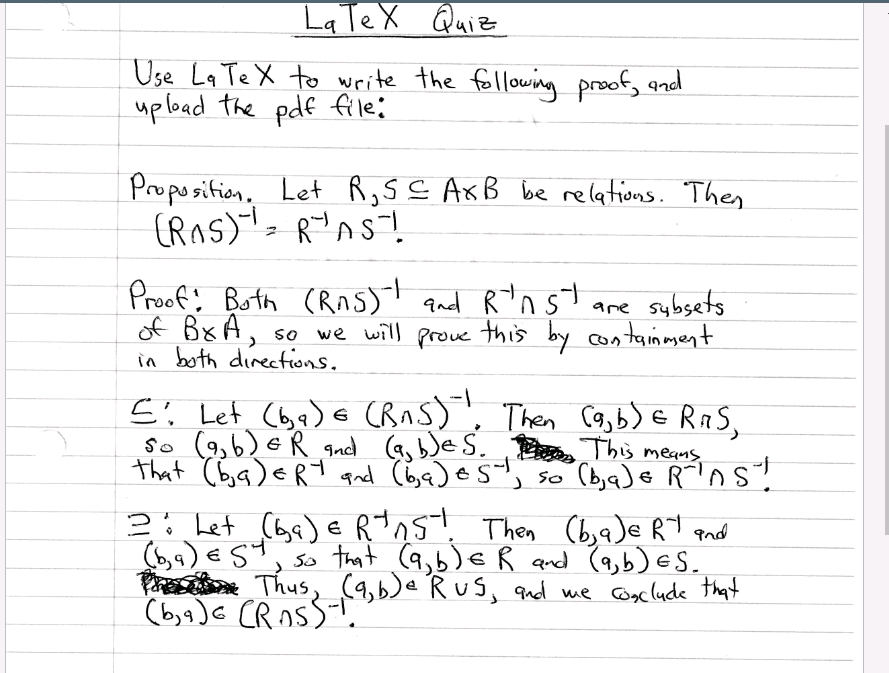 LaTeX Quiz
Use LaTeX to write the following proof, and
upload the pdf file:
Proposition. Let R, S ⊆ A×B be relations. Then
(R∩S)⁻¹ = R⁻¹ ∩ S⁻¹.
Proof: Both (R∩S)⁻¹ and R⁻¹∩S⁻¹ are subsets
of B×A, so we will prove this by containment
in both directions.
⊆: Let (b,a) ∈ (R∩S)⁻¹. Then (a,b) ∈ R∩S,
so (a,b) ∈ R and (a,b) ∈ S. This means
that (b,a) ∈ R⁻¹ and (b,a) ∈ S⁻¹, so (b,a) ∈ R⁻¹∩S⁻¹.
⊇: Let (b,a) ∈ R⁻¹∩S⁻¹. Then (b,a) ∈ R⁻¹ and
(b,a) ∈ S⁻¹, so that (a,b) ∈ R and (a,b) ∈ S.
Thus, (a,b) ∈ R∪S, and we conclude that
(b,a) ∈ (R∩S)⁻¹.